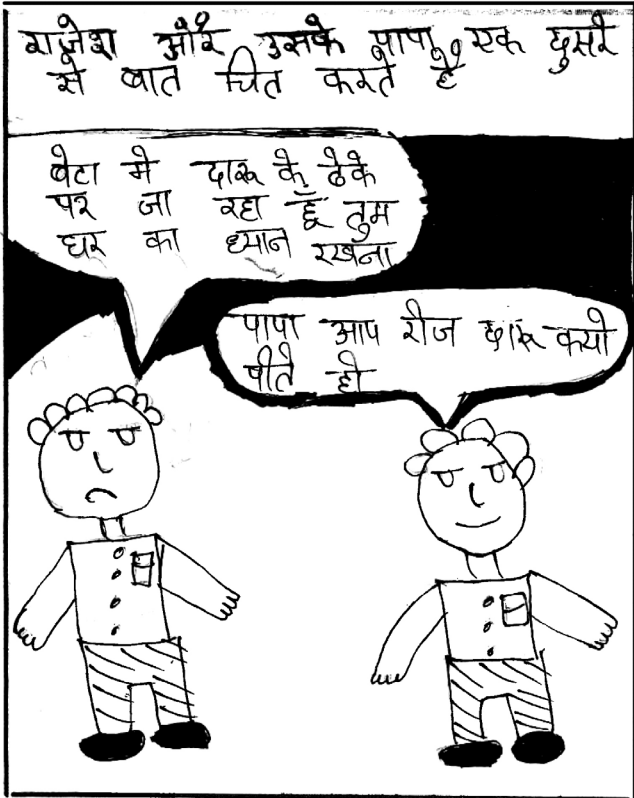 राजेश और उसके पापा एक दुसरे
से बात चित करते है
बेटा मे दारू के ठेके
पर जा रहा हूँ तुम
घर का ध्यान रखना
पापा आप रोज दारू कयो
पीते हो